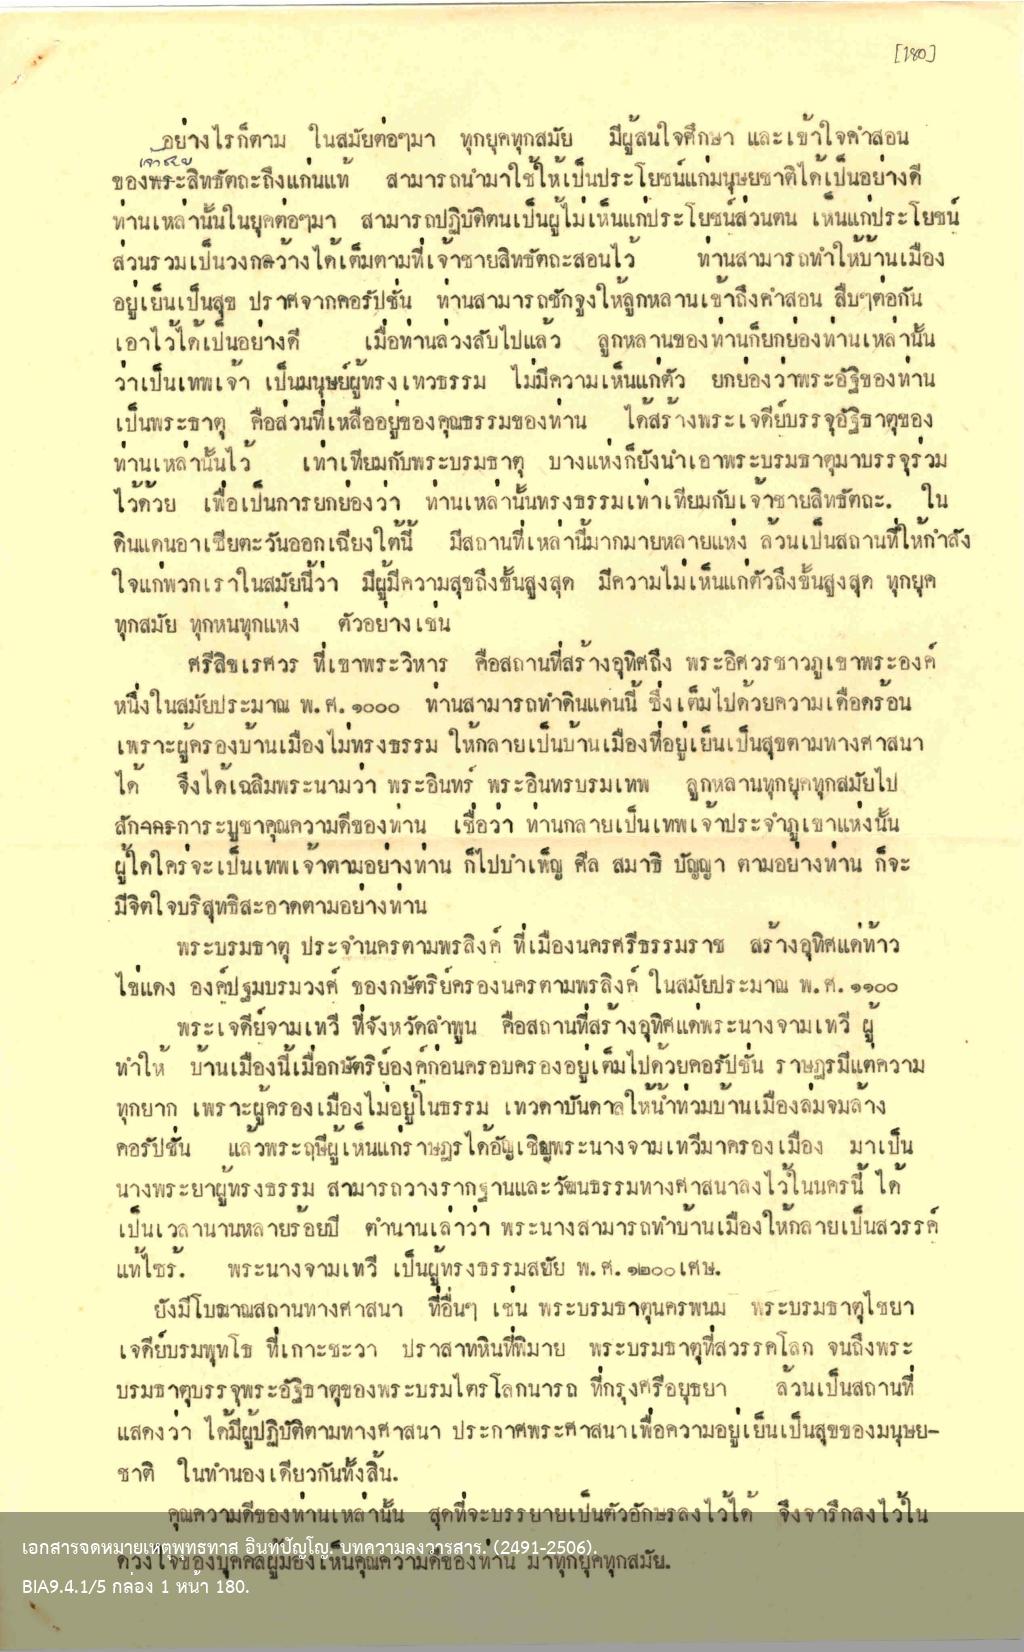 [180]
อย่างไรก็ตาม ในสมัยต่อๆมา ทุกยุคทุกสมัย มีผู้สนใจศึกษา และเข้าใจคำสอน
เจ้าชาย
ของพระสิทธัตถะถึงแก่นแท้ สามารถนำมาใช้ให้เป็นประโยชน์แก่มนุษยชาติได้เป็นอย่างดี
ท่านเหล่านั้นในยุคต่อๆมา สามารถปฏิบัติตนเป็นผู้ไม่เห็นแก่ประโยชน์ส่วนตน เห็นแก่ประโยชน์
ส่วนรวมเป็นวงกว้างได้เต็มตามที่เจ้าชายสิทธัตถะสอนไว้ ท่านสามารถทำให้บ้านเมือง
อยู่เย็นเป็นสุข ปราศจากคอรัปชั่น ท่านสามารถชักจูงให้ลูกหลานเข้าถึงคำสอน สืบๆต่อกัน
เอาไว้ได้เป็นอย่างดี เมื่อท่านล่วงลับไปแล้ว ลูกหลานของท่านก็ยกย่องท่านเหล่านั้น
ว่าเป็นเทพเจ้า เป็นมนุษย์ผู้ทรงเทวธรรม ไม่มีความเห็นแก่ตัว ยกย่องว่าพระอัฐิของท่าน
เป็นพระธาตุ คือส่วนที่เหลืออยู่ของคุณธรรมของท่าน ได้สร้างพระเจดีย์บรรจุอัฐิธาตุของ
ท่านเหล่านั้นไว้ เท่าเทียมกับพระบรมธาตุ บางแห่งก็ยังนำเอาพระบรมธาตุมาบรรจุร่วม
ไว้ด้วย เพื่อเป็นการยกย่องว่า ท่านเหล่านั้นทรงธรรมเท่าเทียมกับเจ้าชายสิทธัตถะ. ใน
ดินแดนอาเซียตะวันออกเฉียงใต้นี้ มีสถานที่เหล่านี้มากมายหลายแห่ง ล้วนเป็นสถานที่ให้กำลัง
ใจแก่พวกเราในสมัยนี้ว่า มีผู้มีความสุขถึงขั้นสูงสุด มีความไม่เห็นแก่ตัวถึงขั้นสูงสุด ทุกยุค
ทุกสมัย ทุกหนทุกแห่ง ตัวอย่างเช่น
ศรีสิขเรศวร ที่เขาพระวิหาร คือสถานที่สร้างอุทิศถึง พระอิศวรชาวภูเขาพระองค์
หนึ่งในสมัยประมาณ พ.ศ.๑๐๐๐ ท่านสามารถทำดินแดนนี้ ซึ่งเต็มไปด้วยความเดือดร้อน
เพราะผู้ครองบ้านเมืองไม่ทรงธรรม ให้กลายเป็นบ้านเมืองที่อยู่เย็นเป็นสุขตามทางศาสนา
ได้ จึงได้เฉลิมพระนามว่า พระอินทร์ พระอินทรบรมเทพ ลูกหลานทุกยุคทุกสมัยไป
สักการะบูชาคุณความดีของท่าน เชื่อว่า ท่านกลายเป็นเทพเจ้าประจำภูเขาแห่งนั้น
ผู้ใดใคร่จะเป็นเทพเจ้าตามอย่างท่าน ก็ไปบำเพ็ญ ศีล สมาธิ ปัญญา ตามอย่างท่าน ก็จะ
มีจิตใจบริสุทธิสะอาดตามอย่างท่าน
พระบรมธาตุ ประจำนครตามพรลิงค์ ที่เมืองนครศรีธรรมราช สร้างอุทิศแด่ท้าว
ไข่แดง องค์ปฐมบรมวงค์ ของกษัตริย์ครองนครตามพรลิงค์ ในสมัยประมาณ พ.ศ.๑๑๐๐
พระเจดีย์จามเทวี ที่จังหวัดลำพูน คือสถานที่สร้างอุทิศแด่พระนางจามเทวี ผู้
ทำให้ บ้านเมืองนี้เมื่อกษัตริย์องค์ก่อนครอบครองอยู่เต็มไปด้วยคอรัปชั่น ราษฎรมีแต่ความ
ทุกยาก เพราะผู้ครองเมืองไม่อยู่ในธรรม เทวดาบันดาลให้น้ำท่วมบ้านเมืองล่มจมล้าง
คอรัปชั่น แล้วพระฤษีผู้เห็นแก่ราษฎรได้อัญเชิญพระนางจามเทวีมาครองเมือง มาเป็น
นางพระยาผู้ทรงธรรม สามารถวางรากฐานและวัฒนธรรมทางศาสนาลงไว้ในนครนี้ ได้
เป็นเวลานานหลายร้อยปี ตำนานเล่าว่า พระนางสามารถทำบ้านเมืองให้กลายเป็นสวรรค์
แท้ไซร้. พระนางจามเทวี เป็นผู้ทรงธรรมสยัย พ.ศ.๑๒๐๐เศษ.
ยังมีโบฆาณสถานทางศาสนา ที่อื่นๆ เช่น พระบรมธาตุนครพนม พระบรมธาตุไชยา
เจดีย์บรมพุทโธ ที่เกาะชะวา ปราสาทหินที่พิมาย พระบรมธาตุที่สวรรคโลก จนถึงพระ
บรมธาตุบรรจุพระอัฐิธาตุของพระบรมไตรโลกนารถ ที่กรุงศรีอยุธยา ล้วนเป็นสถานที่
แสดงว่า ได้มีผู้ปฏิบัติตามทางศาสนา ประกาศพระศาสนาเพื่อความอยู่เย็นเป็นสุขของมนุษย-
ชาติ ในทำนองเดียวกันทั้งสิ้น.
คุณความดีของท่านเหล่านั้น สุดที่จะบรรยายเป็นตัวอักษรลงไว้ได้ จึงจารึกลงไว้ใน
ดวงใจของบุคคลผู้มองเห็นคุณความดีของท่าน มาทุกยุคทุกสมัย.
เอกสารจดหมายเหตุพุทธทาส อินทปัญโญ. บทความลงวารสาร. (2491-2506).
BIA9.4.1/5 กล่อง 1 หน้า 180.